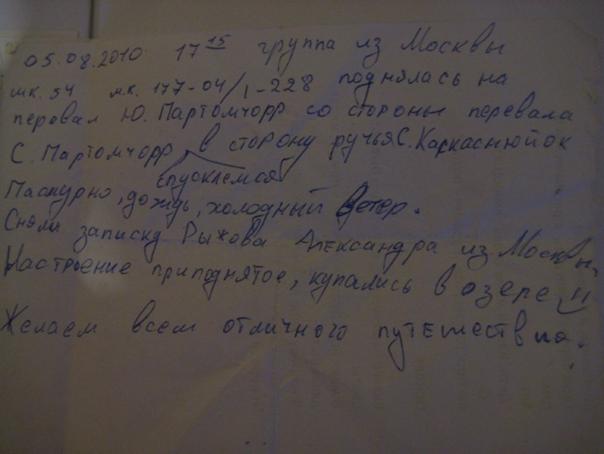 05.08.2010 17 15 группа из Москвы
шк. 54 мк. 177-04/1-228 поднялась на
перевал Ю. Партомчорр со стороны перевала
С. Партомчорр, в сторону ручья С. Каркаснюйок
спускаемся
Пасмурно, дождь, холодный ветер.
Сняли записку Рыжова Александра из Москвы.
Настроение приподнятое, купались в озере,
Желаем всем отличного путешествия.